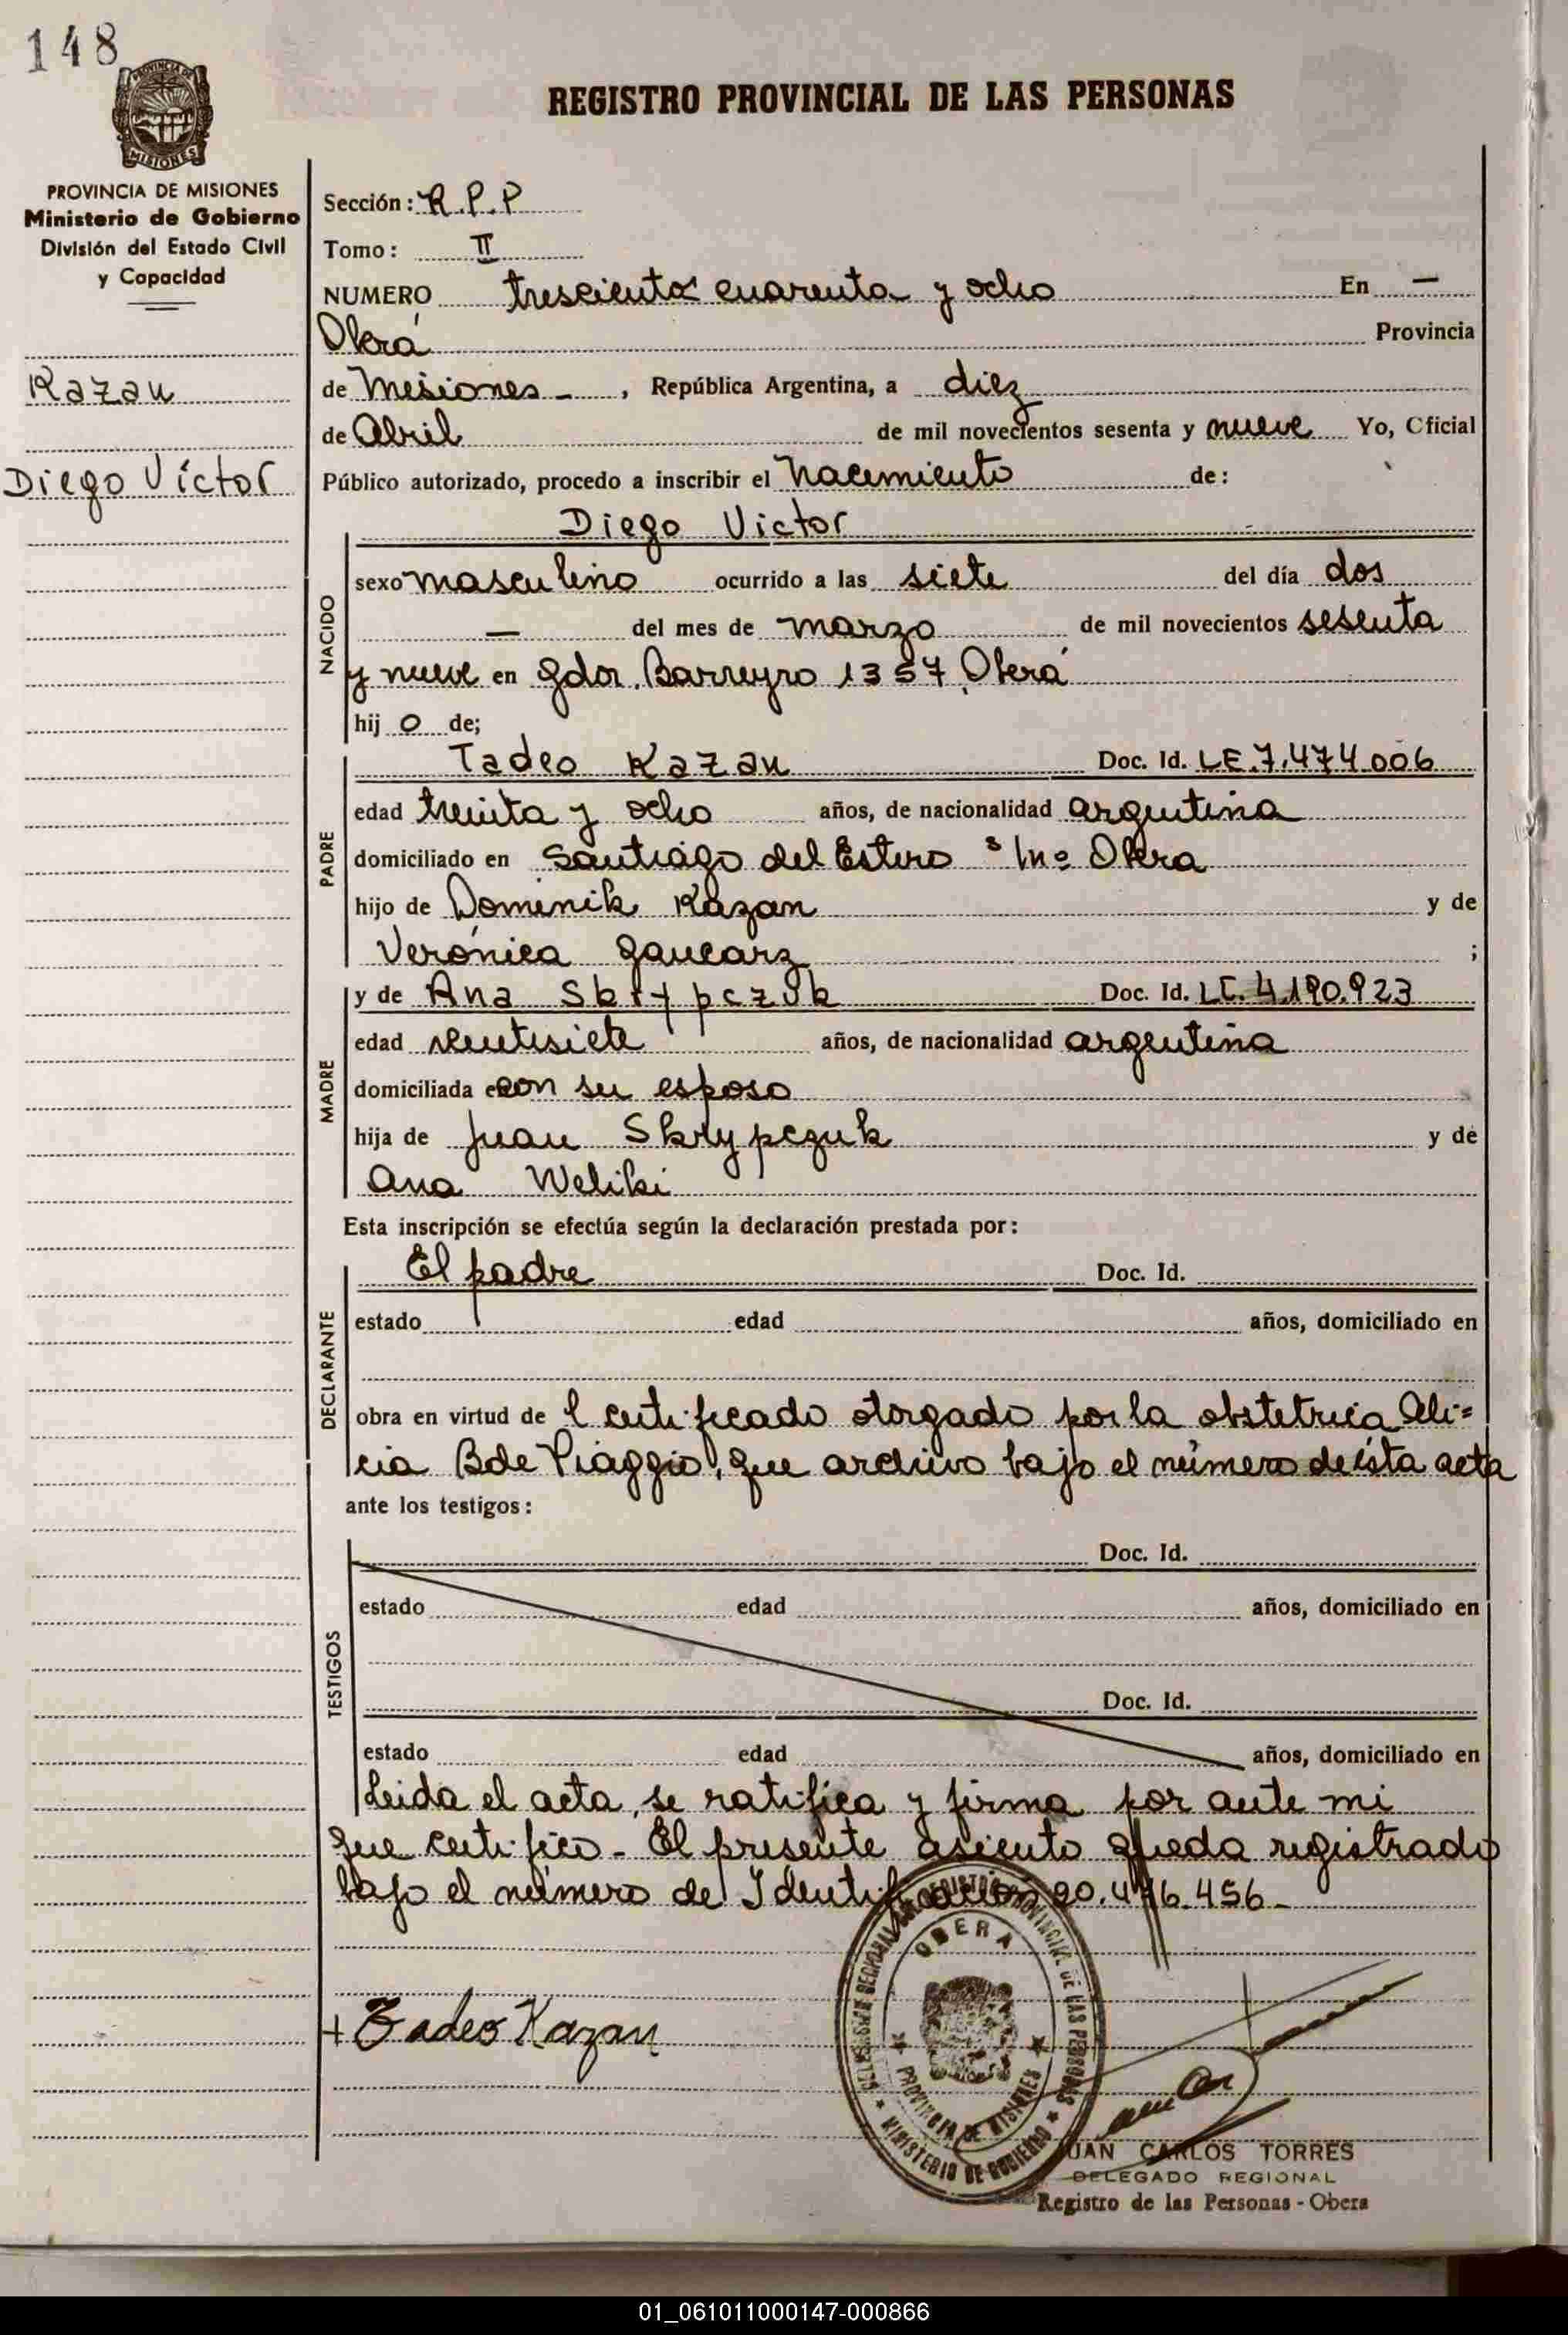 148
PROVINCIA DE
MISIONES
REGISTRO PROVINCIAL DE LAS PERSONAS
PROVINCIA DE MISIONES
Ministerio de Gobierno
División del Estado Civil
y Capacidad
Kazan
Diego Víctor
Sección: R.P.P
Tomo: II
NUMERO trescientos cuarenta y ocho En —
Oberá Provincia
de Misiones -, República Argentina, a diez
de Abril de mil novecientos sesenta y nueve Yo, Oficial
Público autorizado, procedo a inscribir el nacimiento de:
Diego Victor
NACIDO
sexo masculino ocurrido a las siete del día dos
— del mes de marzo de mil novecientos sesenta
y nueve en Gdor. Barreyro 1357, Oberá
hij o de;
Tadeo Kazan Doc. Id. LE.7.474.006
PADRE
edad treinta y ocho años, de nacionalidad argentina
domiciliado en Santiago del Estero s/nº Obera
hijo de Dominik Kazan y de
Verónica Gaucarz ;
y de Ana Skrypczuk Doc. Id. LC.4.190.923
MADRE
edad veintisiete años, de nacionalidad argentina
domiciliada con su esposo
hija de Juan Skrypczuk y de
Ana Weliki
Esta inscripción se efectúa según la declaración prestada por:
El padre Doc. Id.
DECLARANTE
estado edad años, domiciliado en
obra en virtud de l certificado otorgado por la obstetrica Ali=
cia B de Piaggio, que archivo bajo el número de ésta acta
ante los testigos:
Doc. Id.
TESTIGOS
estado edad años, domiciliado en
Doc. Id.
estado edad años, domiciliado en
Leida el acta, se ratifica y firma por ante mi
que certifico - El presente asiento queda registrado
bajo el número de Identificación 20.476.456-
OBERA
PROVINCIA DE MISIONES
MINISTERIO DE GOBIERNO
+ Tadeo Kazan
JUAN CARLOS TORRES
DELEGADO REGIONAL
Registro de las Personas - Obera
01_061011000147-000866